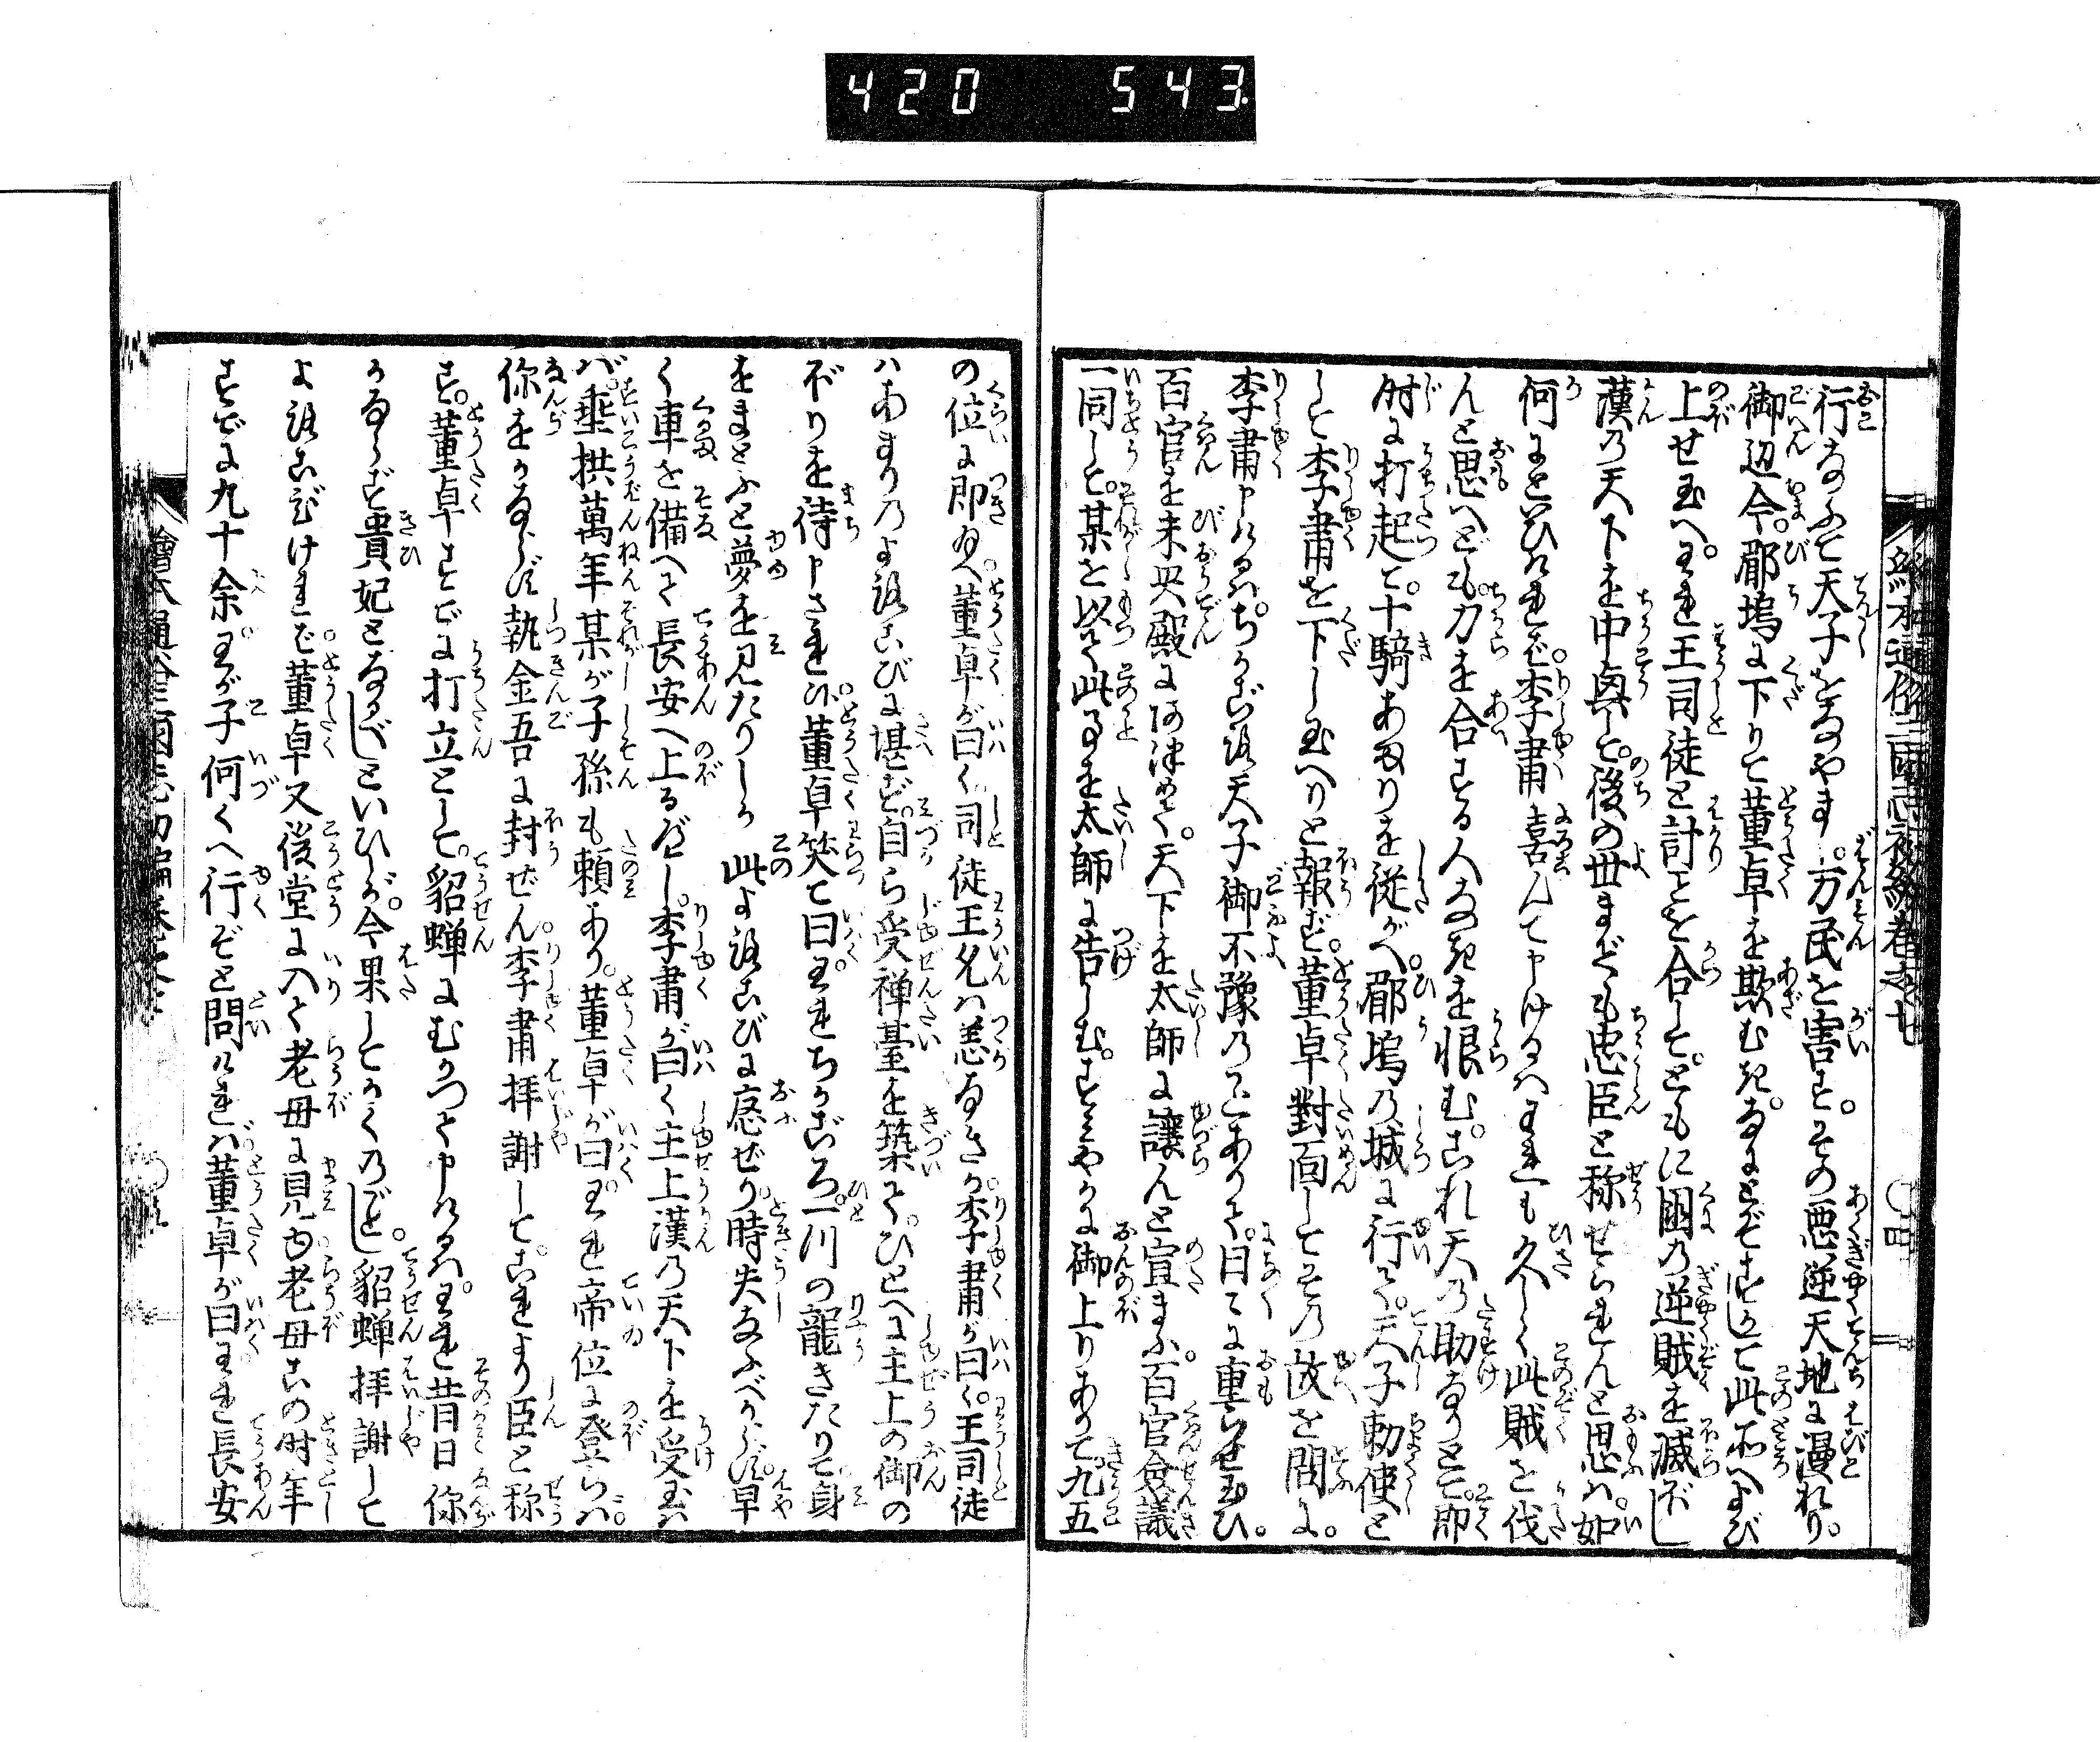 420 543.
行なふて天子をなやまし。万民を害す。その悪逆天地に漫れり。
御辺今。郿塢に下りて董卓を欺むき。なにとぞすかして此所へよび
上せ玉へ。われ王司徒と計ことを合して。ともに国の逆賊を滅ぼし
漢の天下を中興して。後の世までも忠臣と称せられんと思ふ。如
何にといひければ。李肅喜んで申けるはわれも久しく此賊を伐
んと思へども。力を合する人なきを恨む。これ天の助なりとて。即
時に打起て。十騎あまりを従がへ。郿塢の城に行て。天子勅使と
して李肅を下し玉へりと報ず。董卓對面してその故を問に。
李肅申けるは。ちかごろ天子御不豫のことありて。日々に重らせ玉ひ。
百官を未央殿にあつめて。天下を太師に讓んと宣まふ。百官僉議
一同して。某を以て此ことを太師に告しむ。すみやかに御上りありて。九五
の位に即玉へ。董卓が曰く司徒王允は恙なきか。李肅が曰く。王司徒
はあまりのよろこびに堪ず。自ら受禅臺を築て。ひとへに主上の御の
ぼりを待申さればゞ。董卓笑て曰。われちかごろ。一川の龍きたりて身
をまとふと夢を見たりしが此よろこびに應ぜり。時失なふべからず。早
く車を備へて長安へ上るべし。李肅が曰く主上漢の天下を受玉は
ば。垂拱萬年某が子孫も頼あり。董卓が曰。われ帝位に登らば
你をかならず執金吾に封ぜん。李肅拝謝して。これより臣と称
す。董卓すでに打立として。貂蝉にむかつて申けるは。われ昔日你
かならず貴妃となるべしといひしが。今果してかくのごとし。貂蝉拝謝して
よろこびければ。董卓又後堂に入て老母に見ゆ。老母この時年
すでに九十余。わが子何くへ行ぞと問ければ。董卓が曰。われ長安